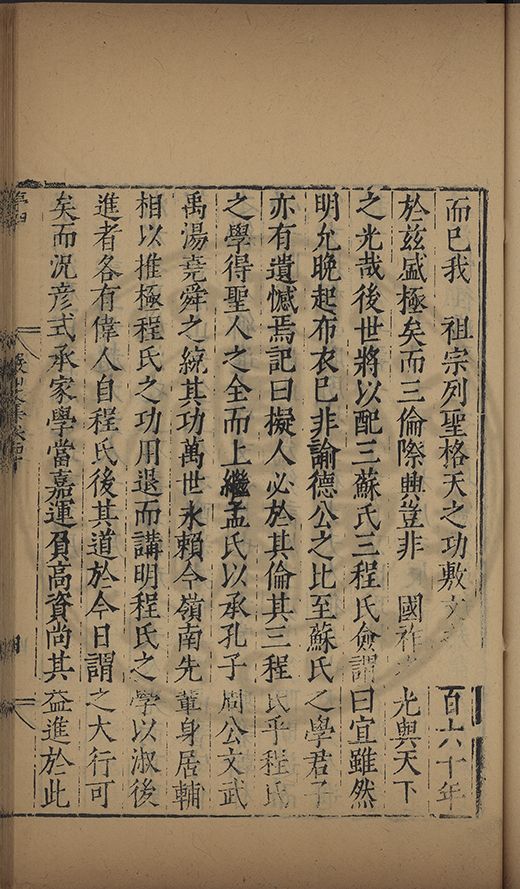 而已我　祖宗列聖格天之功敷　百六十年
於兹盛極矣而三倫際興豈非　國祚　光與天下
之光哉後世將以配三蘇氏三程氏僉謂曰宜雖然
明允晚起布衣已非諭德公之比至蘇氏之學君子
亦有遺憾焉記曰擬人必於其倫其三程氏乎程氏
之學得聖人之全而上繼孟氏以承孔子周公文武
禹湯堯舜之統其功萬世永賴今嶺南先輩身居輔
相以推極程氏之功用退而講明程氏之學以淑後
進者各有偉人自程氏後其道於今日謂之大行可
矣而況彦式承家學當嘉運負高資尚其益進於此